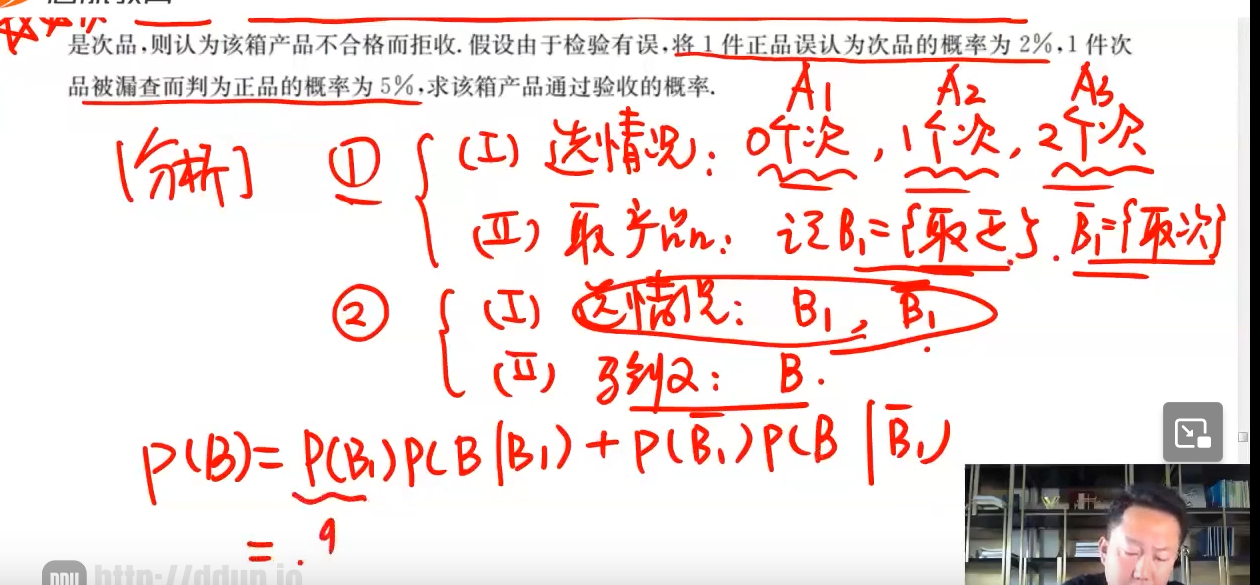 是次品,则认为该箱产品不合格而拒收.假设由于检验有误,将1件正品误认为次品的概率为2%,1件次
品被漏查而判为正品的概率为5%,求该箱产品通过验收的概率.
A1 A2 A3
[分析] ① (I) 选情况: 0个次, 1个次, 2个次
(II) 取产品: 记B₁={取正}. B̄₁={取次}
② (I) 选情况: B₁, B̄₁
(II) 验收: B.
P(B)=P(B₁)P(B|B₁)+P(B̄₁)P(B|B̄₁)
= .9
http://ddup.io